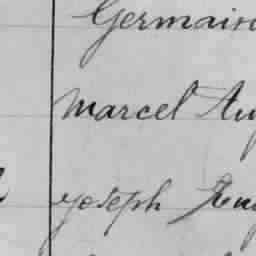 Germain
Marcel Au
Joseph